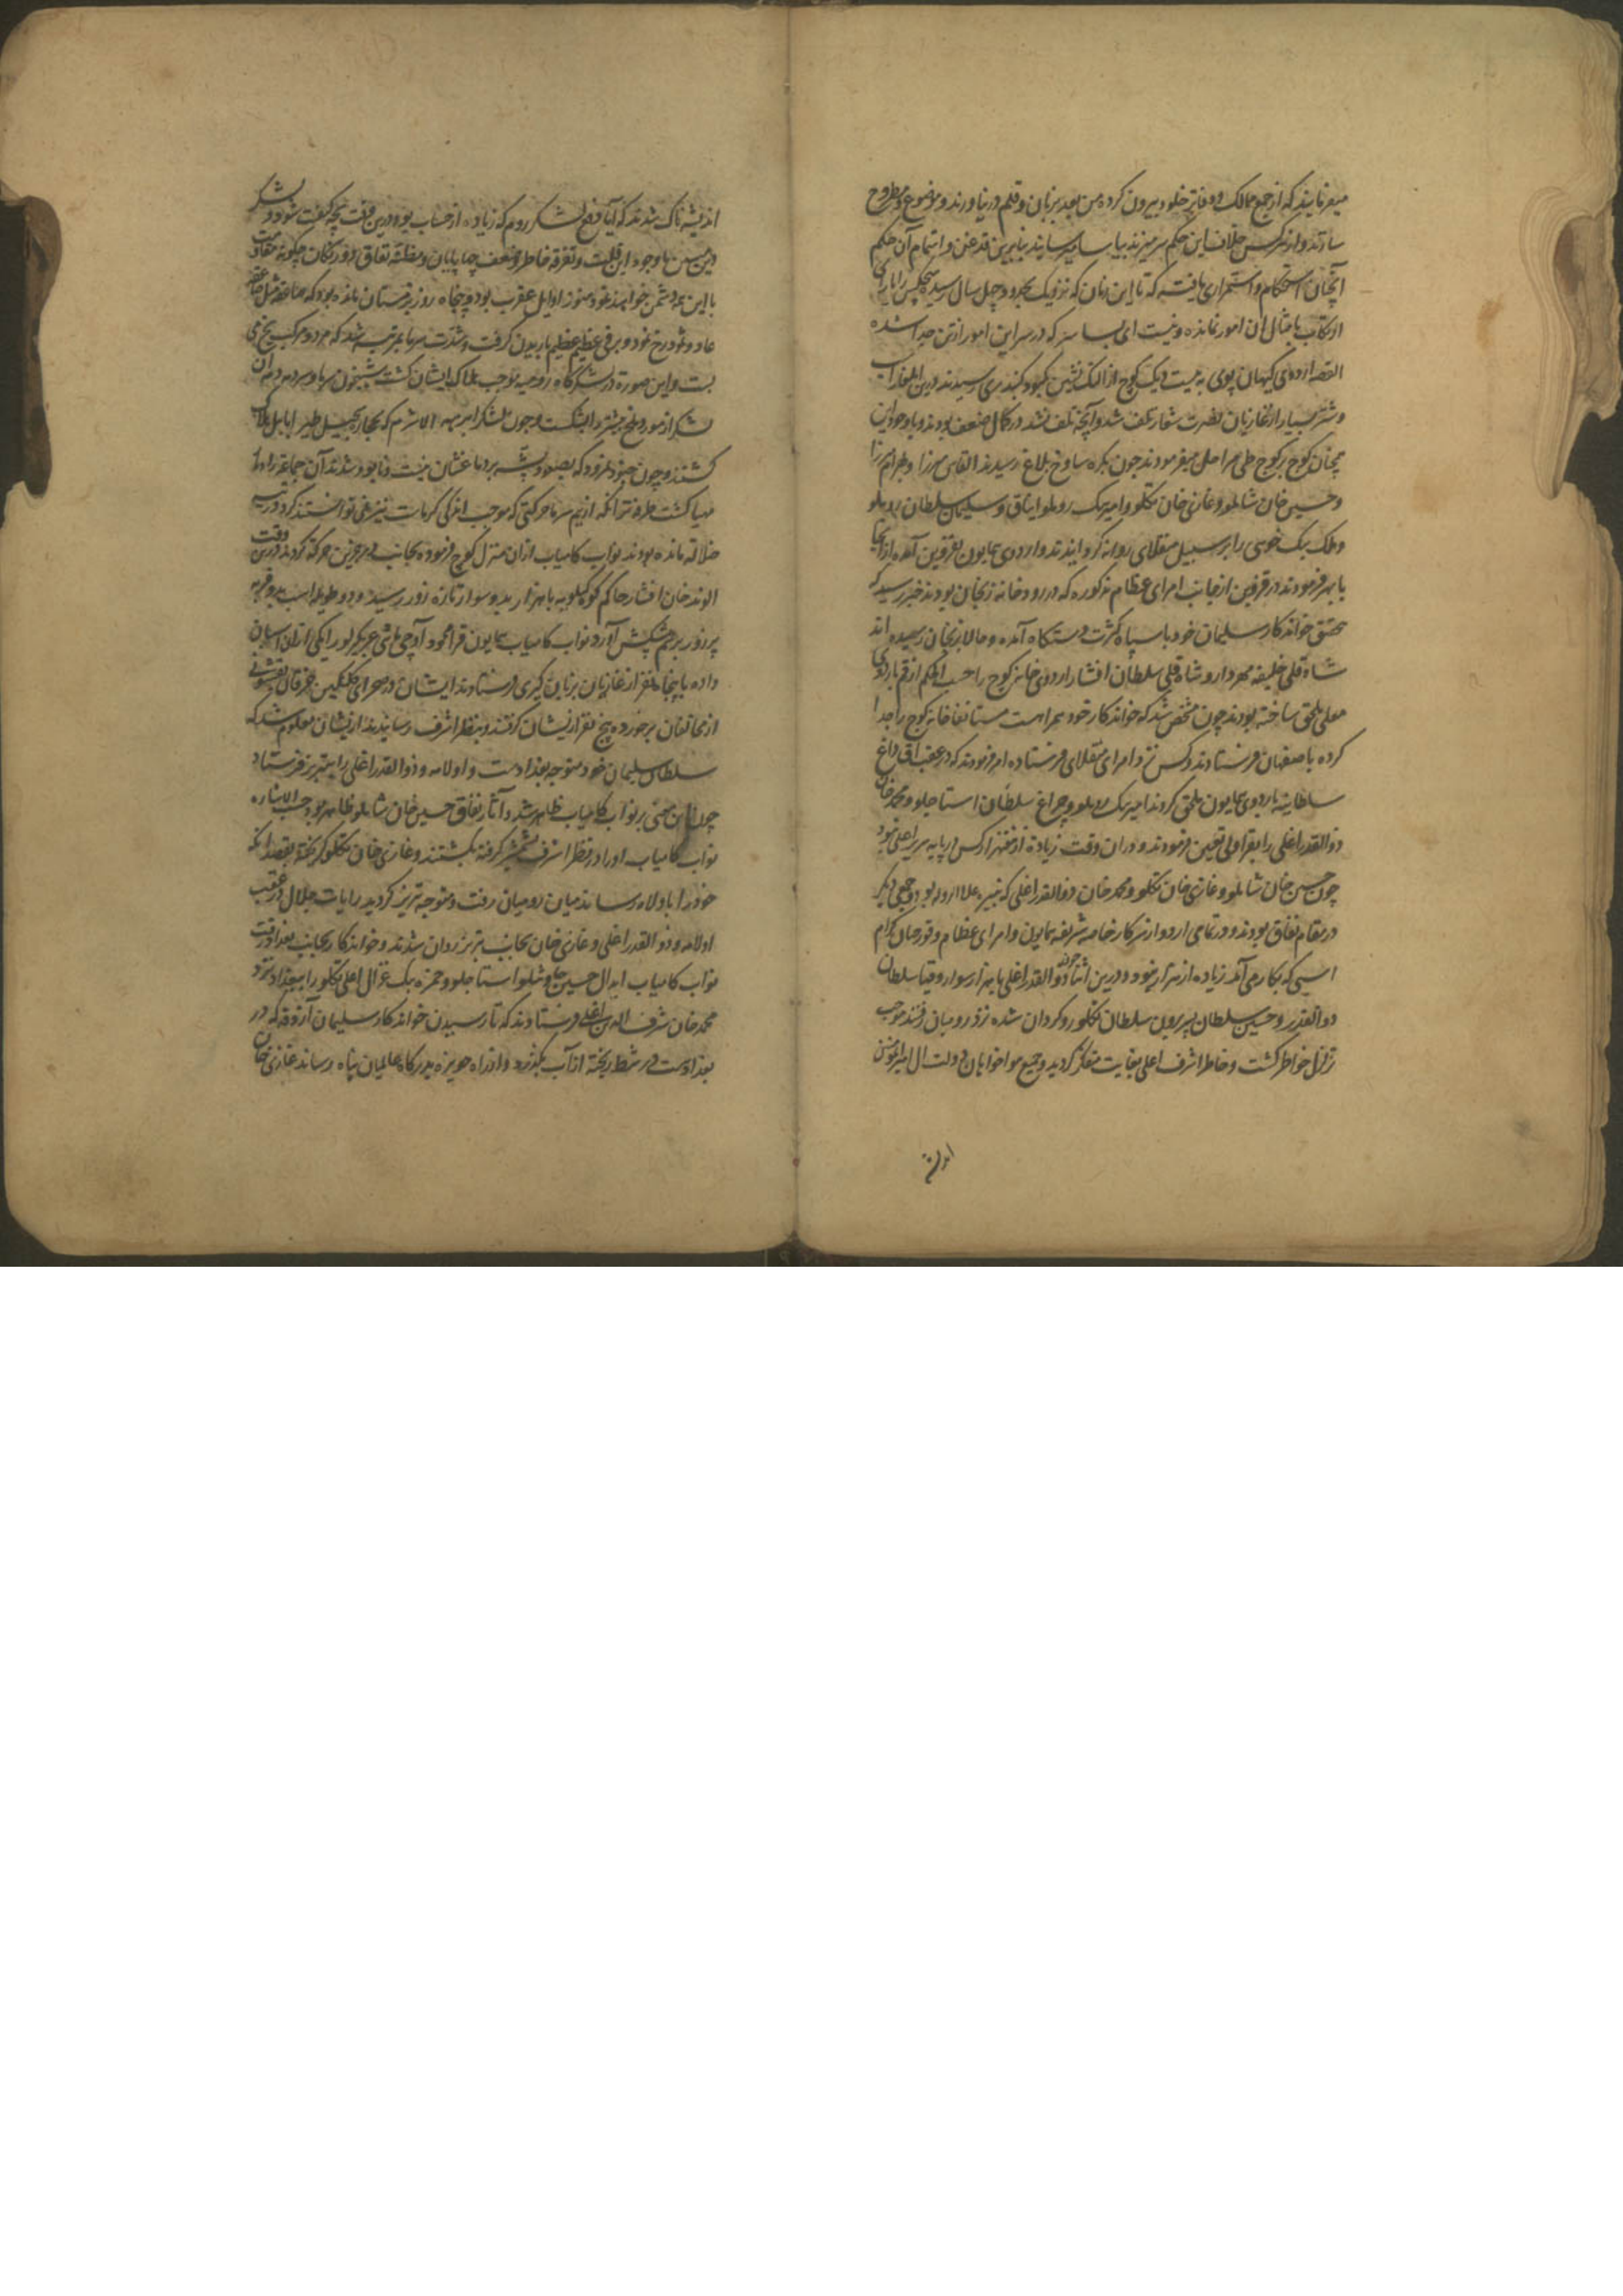 میفرمایند که از جمیع ممالک و دفاتر خلود بیرون کرده من بعد بر زبان و قلم در نیاورند و موضوع و مطروح
سازند و از هر کس خلاف این حکم سر میزند بیاسا میرسانند بنابرین قدغن و اهتمام آن حکم
آنچنان استحکام و استمراری یافته که تا این زمان که نزدیک بحدود چهل سال رسید هیچکس را یارای
ارتکاب بامثال آن امور نمانده و نیست ای بسا سر که در سر این امور از تن جدا شده
القصه اردوی کیهان پوی به بیست و یک کوچ از النک نشین کبود کنبد ری رسیدند درین ایلغار اسب
و شتر بسیار از غازیان نصرت شعار تلف شد و آنچه تلف نشد در کمال ضعف بودند و با وجود این
همچنان کوچ بر کوچ طی مراحل میفرمودند چون بکره ساوخ بلاغ رسیدند القاس میرزا و بهرام میرزا
و حسین خان شاملو و غازی خان تکلو و امیر بیک روملو ایناق و سلیمان سلطان روملو
و ملک بیک خویی را بر سبیل منقلای روانه کردانیدند و اردوی همایون بقزوین آمده از آنجا
بابهر فرمودند در قزوین از جانب امرای عظام مذکوره که در رودخانه زنجان بودند خبر رسید که
تحقیق خواندکار سلیمان خود با سپاه کثرت دستکاه آمده و حالا بزنجان رسیده اند
شاه قلی خلیفه مهردار و شاه قلی سلطان افشار اردوی خانه کوچ را حسب الحکم از قم باردوی
معلی ملحق ساخته بودند چون مشخص شد که خواندکار خود همراهست مستانفا خانه کوچ را جدا
کرده باصفهان فرستادند و کس نزد امرای منقلای فرستاده امر فرمودند که در عقب آق داغ
سلطانیه باردوی همایون ملحق کردند امیر بیک روملو و چراغ سلطان استاجلو و محمد خان
ذوالقدر اغلی را بقراولی تعیین فرمودند و در آن وقت زیاده از هفت هزار کس در پایه سریر اعلی نبود
چون حسین خان شاملو و غازی خان تکلو و محمد خان ذوالقدر اغلی که نبیره علاء الدوله بود و جمعی دیگر
در مقام نفاق بودند و در تمامی اردو از سرکار خاصه شریفه همایون و امرای عظام و قورچیان کرام
اسبی که بکار می آمد زیاده از سه هزار نبود و درین اثنا ذوالقدر اغلی با هزار سوار و قیا سلطان
ذوالقدر و حسین سلطان پسر برون سلطان تکلو روکردان شده نزد رومیان رفتند موجب
تزلزل خواطر کشت و خاطر اشرف اعلی بغایت متفکر کردید و جمیع هواخواهان دولت آل امیر المومنین
اندیشه
اندیشه ناک شدند که آیا دفع لشکر روم که زیاده از حساب بود درین وقت بچه کیفیت شود و لشکر
باوجود این قلت و تفرقه خاطر و ضعف چارپایان و مظنه نفاق دو رنکان چکونه مقاومت
با این همه دشمن خواهند نمود هنوز اوایل عقرب بود و پنجاه روز بزمستان مانده بود که صاعقه مثل صاعقه
عاد و ثمود رخ نمود و برفی عظیم عظیم باریدن کرفت و شدت سرما بمرتبه شد که مرد و مرکب یخ می
بست و این صورت در لشکرکاه رومیه موجب هلاک ایشان کشت شبیخون سرما و سر در دم آن
لشکر از مور و ملخ بیشتر را شکست و چون لشکر ابرهه الاشرم که بحجاره سجیل طیر ابابیل هلاک
کشتند و چون جنود نمرود که بصدمه پشه بر دماغشان نیست و نابود شدند آن جماعت را
مهیا کشت طرفه تر آنکه از بیم سرما حرکتی که موجب اندکی گرماست نیز نمی توانستند کرد در تیه
ضلالت مانده بودند نواب کامیاب از آن منزل کوچ فرموده بجانب درجزین حرکت کردند درین وقت
الوند خان افشار حاکم کوه کیلویه با هزار بدوسوار تازه زور رسید و دو طویله اسب بدو فربه
پر زور برسم پیشکش آورد نواب کامیاب همایون قرا محمود آدچی باشی عربکیرلو را یکی از آن اسبان
داده با پنجاه نفر از غازیان بزبان کیری فرستادند ایشان در صحرای کلنکین خرقان بقشونی
از مخالفان برخورده پنج نفر از ایشان گرفتند و بنظر اشرف رسانیدند از ایشان معلوم شد که
سلطان سلیمان خود متوجه بغدادست و اولامه و ذوالقدر اغلی را بتبریز فرستاد
چون این معنی بر نواب کامیاب ظاهر شد و آثار نفاق حسین خان شاملو ظاهر بود حسب الاشاره
نواب کامیاب او را در نظر اشرف شمشیر گرفته بکشتند و غازی خان تکلو کریخته بقصد آنکه
خود را باولامه رساند میان رومیان رفت و متوجه تبریز کردید رایات جلال در عقب
اولامه و ذوالقدر اغلی و غازی خان بجانب تبریز روان شدند و خواندکار بجانب بغداد رفت
نواب کامیاب ابدال حسین چاوشلو استاجلو و حمزه بیک غزال اغلی تکلو را ببغداد نزد
محمد خان شرف الدین اغلی فرستادند که تا رسیدن خواندکار سلیمان آزوقه که در
بغدادست در شط ریخته از آب بکذرد و از راه حویزه بدرکاه عالمیان پناه رساند غازی خان